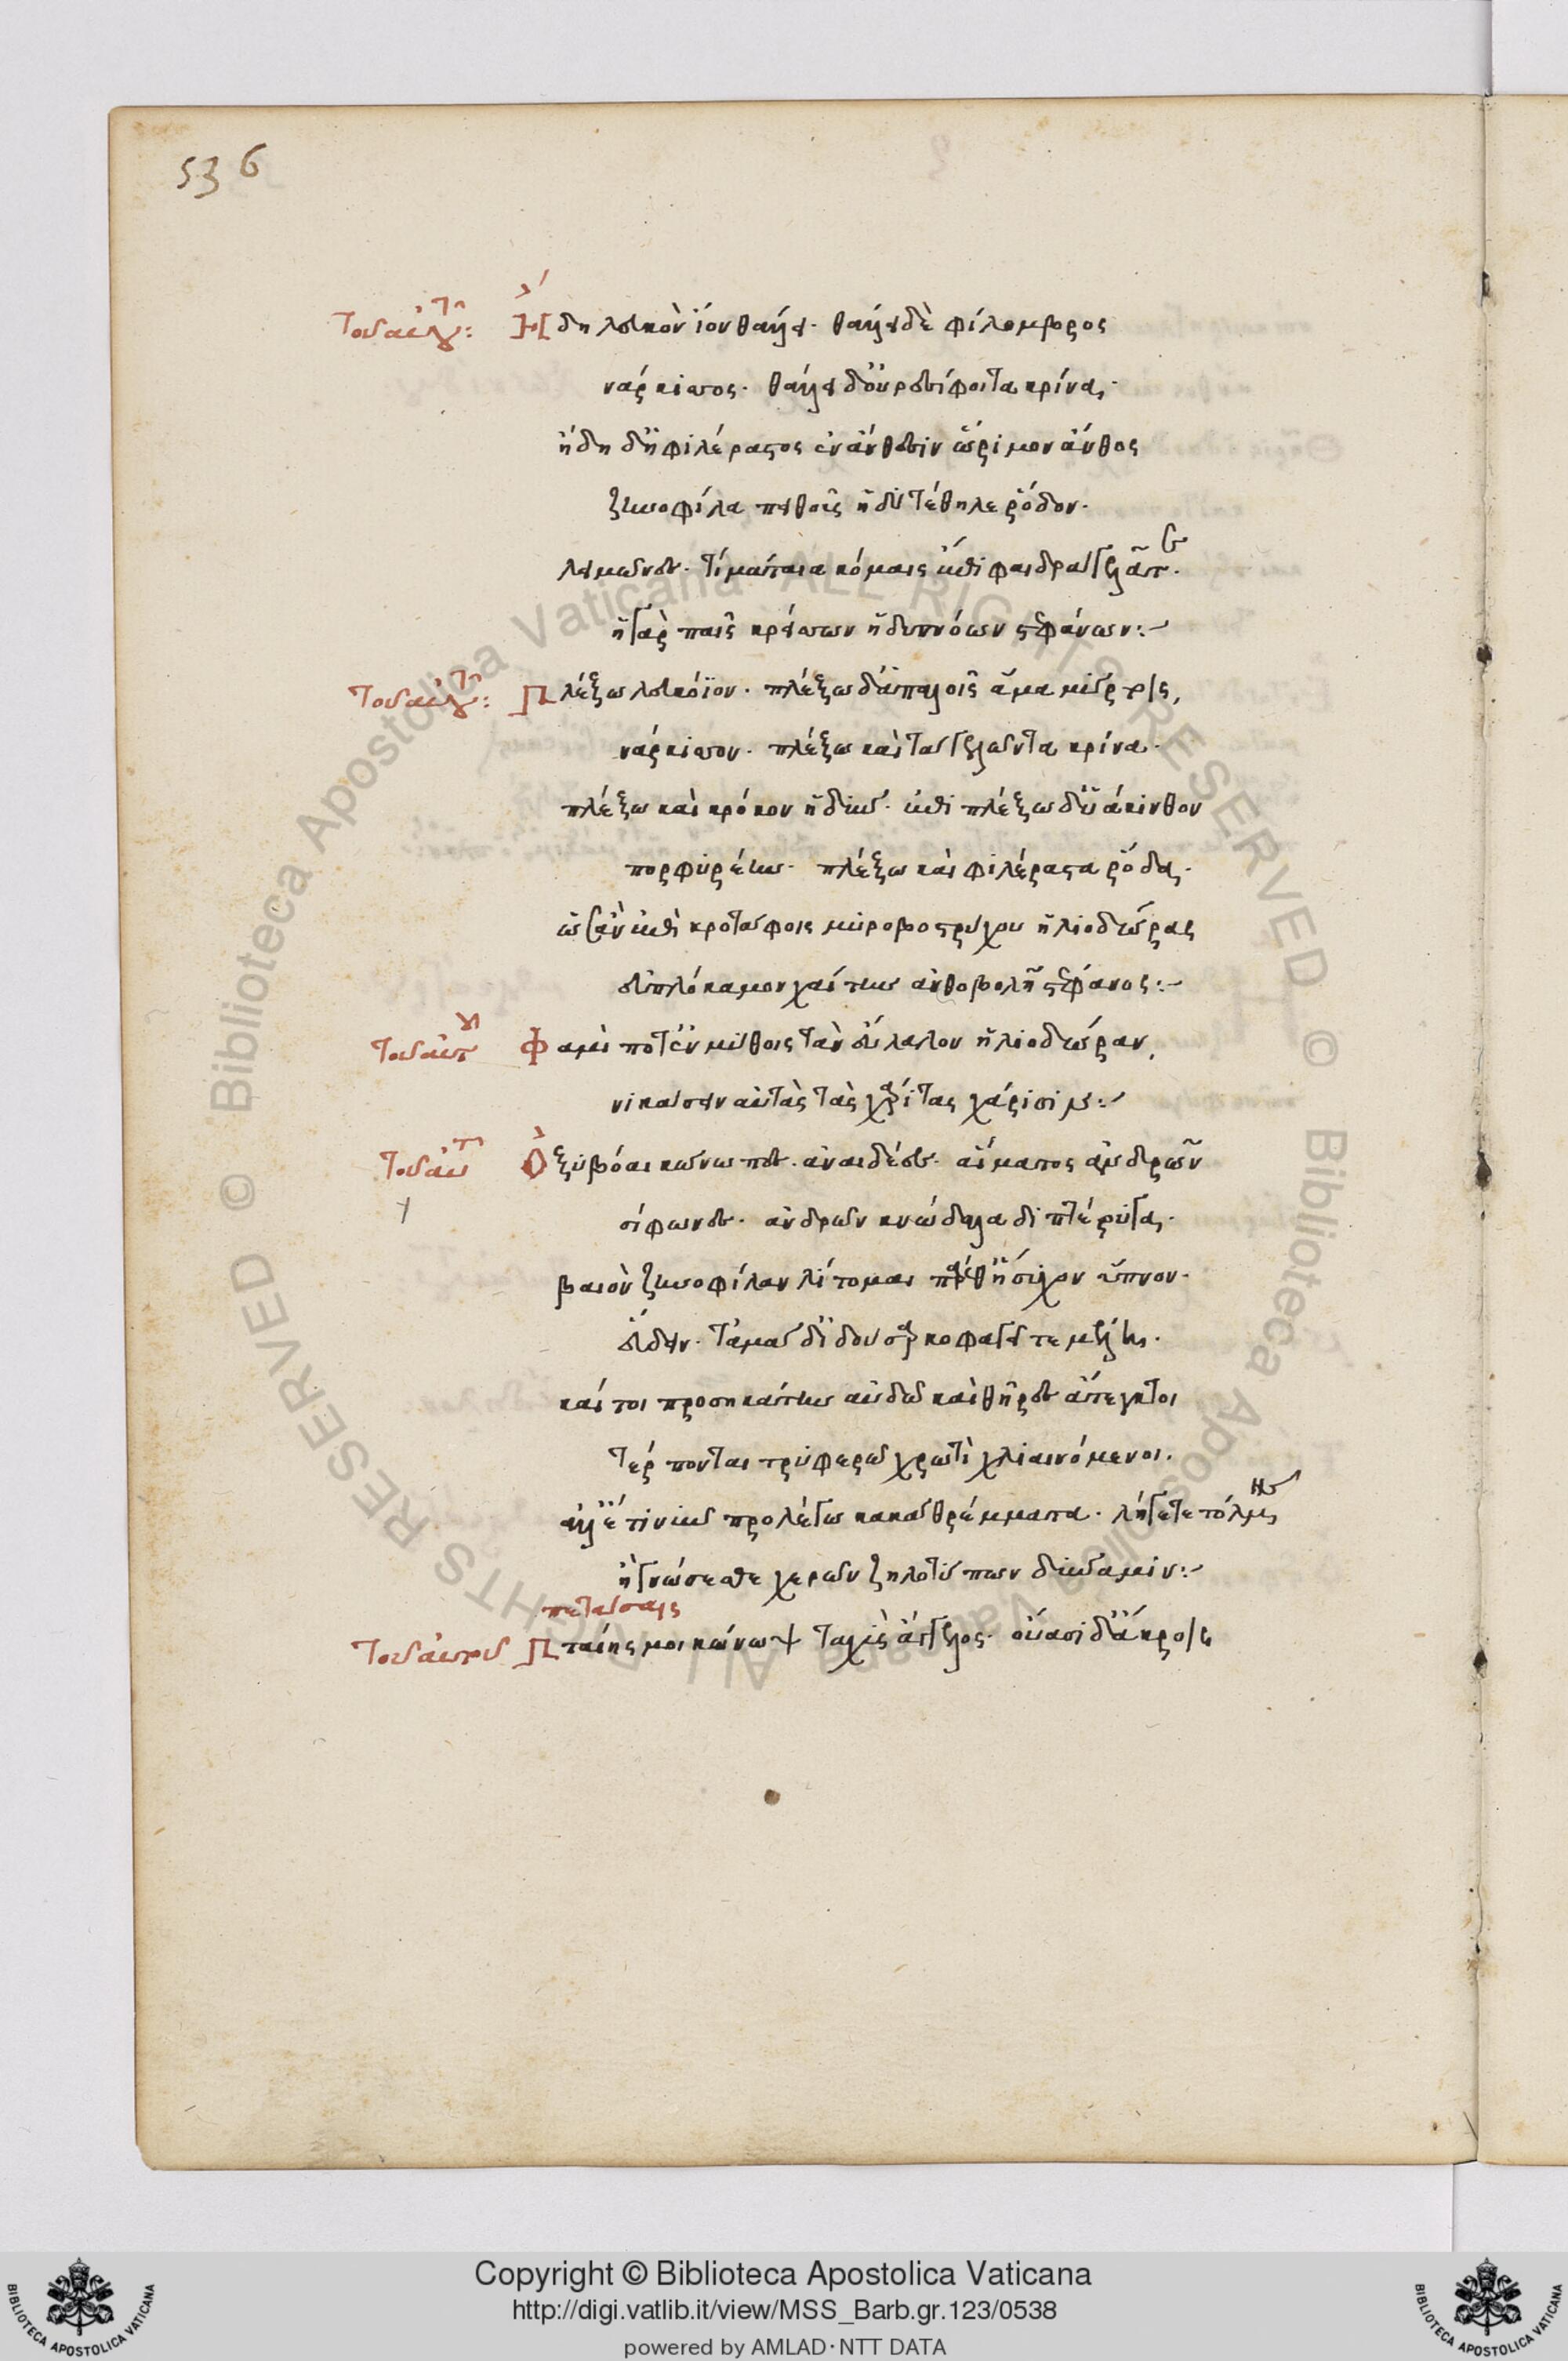 536
Τοῦ αὐτοῦ: Ἤδη λευκόϊον θάλλει· θάλλει δὲ φίλομβρος
νάρκισσος· θάλλει δ' οὐρεσίφοιτα κρίνα,
ἤδη δ' ἡ φιλέραστος ἐν ἄνθεσιν ὥριμον ἄνθος
ζηνοφίλα πειθοῦς ἡδὺ τέθηλε ῥόδον·
λειμῶνες· τί μάταια κόμαις ἔπι φαιδρὰ γελᾶτε·
ἡ γὰρ παῖς κρείσσων ἡδυπνόων στεφάνων:~
Τοῦ αὐτοῦ: Πλέξω λευκόϊον· πλέξω δ' ἁπαλοῖς ἅμα μύρτοις,
νάρκισσον· πλέξω καὶ τὰ γελῶντα κρίνα·
πλέξω καὶ κρόκον ἡδύν· ἔπι πλέξω δ' ὑάκινθον
πορφυρέην· πλέξω καὶ φιλέραστα ῥόδα,
ὡς ἂν ἐπὶ κροτάφοις μυροβοστρύχου ἡλιοδώρας
εὐπλόκαμον χαίτην ἀνθοβολῇ στέφανος:~
Τοῦ αὐτοῦ Φαμί ποτ' ἐν μύθοις τὰν εὔλαλον ἡλιοδώραν,
νικάσειν αὐτὰς τὰς χάριτας χάρισιν:~
Τοῦ αὐτοῦ Ὀξυβόαι κώνωπες· ἀναιδέες· αἵματος ἀνδρῶν
σίφωνες· ἀνδρῶν κνώδαλα διπτέρυγα·
βαιὸν ζηνοφίλαν λίτομαι πάρεθ' ἥσυχον ὕπνον·
εὕδειν· τἀμὰ δ' ἰδοὺ σαρκοφαγεῖτε μέλη·
καίτοι πρὸς τί μάτην αὐδῶ καὶ θῆρες ἄτεγκτοι
τέρπονται τρυφερῷ χρωτὶ χλιαινόμενοι.
ἀλλ' ἔτι νῦν προλέγω κακὰ θρέμματα· λήγετε τόλμης
ἢ γνώσεσθε χερῶν ζηλοτύπων δύναμιν:~
πετάσαις
Τοῦ αὐτοῦ Πταίης μοι κώνωψ ταχὺς ἄγγελος· οὔασι δ' ἄκροις
Copyright © Biblioteca Apostolica Vaticana
http://digi.vatlib.it/view/MSS_Barb.gr.123/0538
powered by AMLAD · NTT DATA